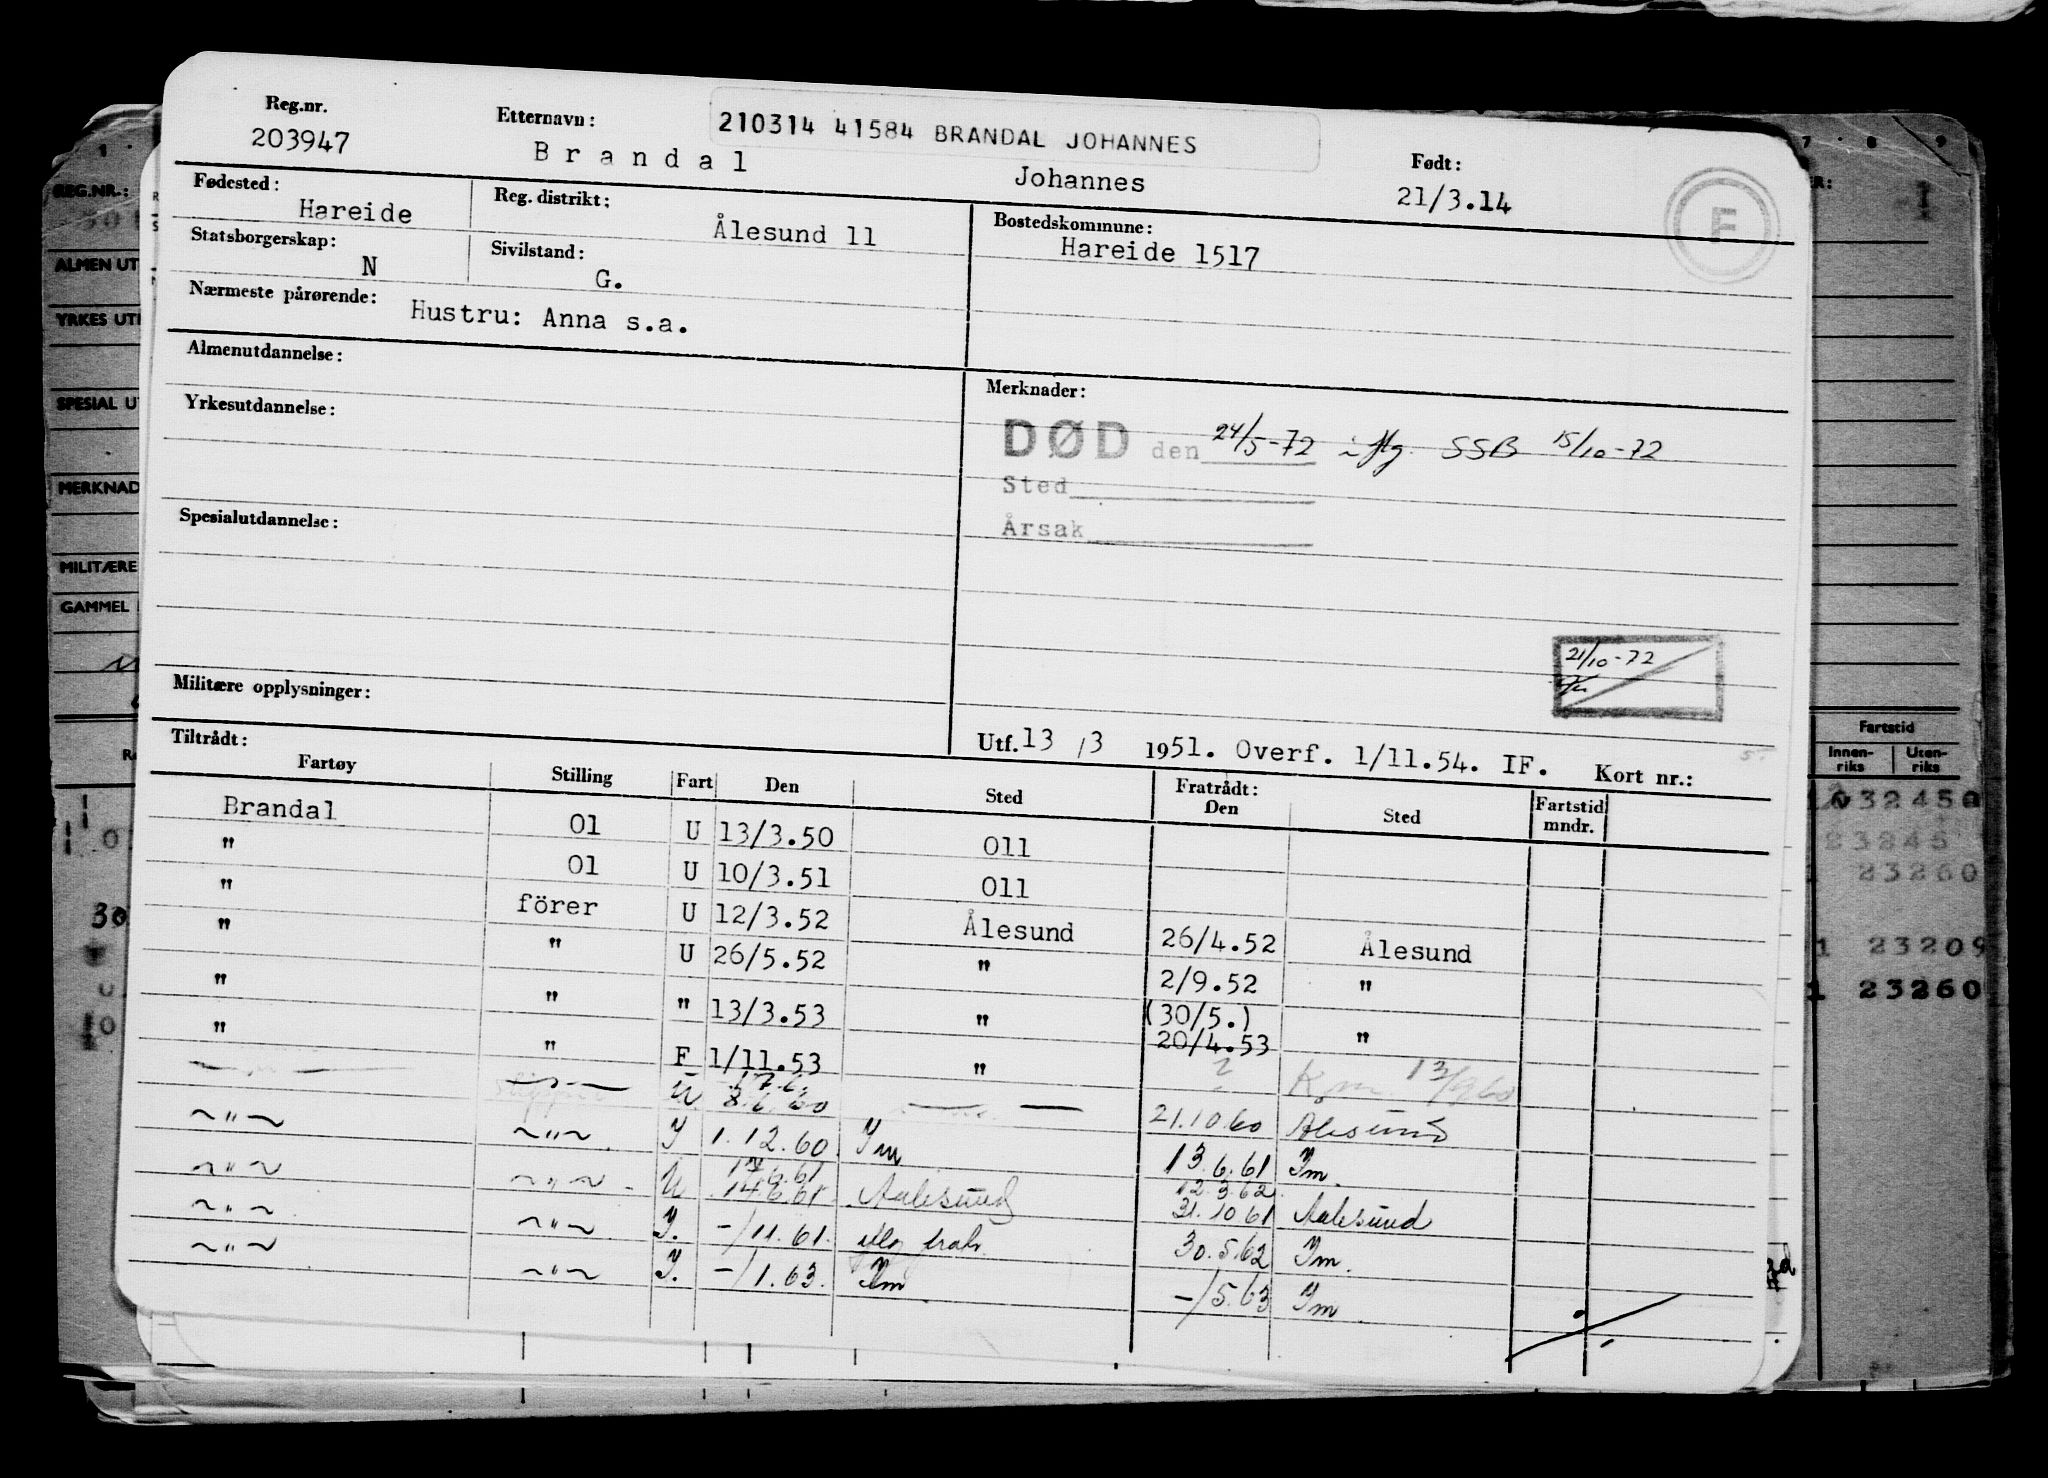 Reg.nr. Etternavn: 210314 41584 BRANDAL JOHANNES Født:
203947 Brandal Johannes 21/3.14
F
Fødested: Reg. distrikt: Bostedskommune:
Hareide Ålesund 11 Hareide 1517
Statsborgerskap: Sivilstand:
N G.
Nærmeste pårørende: Hustru: Anna s.a.
Almenutdannelse: Merknader:
Yrkesutdannelse: DØD den 24/5-72 iflg. SSB 15/10-72
Sted
Spesialutdannelse: Årsak
21/10-72
Militære opplysninger:
Utf. 13/3 1951. Overf. 1/11.54. IF. Kort nr.:
Tiltrådt: Fratrådt:
Fartøy Stilling Fart Den Sted Den Sted Fartstid mndr.
Brandal Ol U 13/3.50 Oll
" Ol U 10/3.51 Oll
" förer U 12/3.52 Ålesund 26/4.52 Ålesund
" " U 26/5.52 " 2/9.52 "
" " " 13/3.53 " (30/5.) 20/4.53 "
" " F 1/11.53 " ?
13/9 60
U 8.6.60 21.10.60 Alesund
~"~ ~"~ I 1.12.60 Im 13.6.61 Im.
17.6.61 12.3.62
~"~ ~"~ U 14.6.61 Aalesund 31.10.61 Aalesund
~"~ ~"~ I. -/11.61. 30.5.62 Im.
~"~ ~"~ I. -/1.63. Im -/5.63 Im
REG.NR.:
ALMEN UT
YRKES UT
SPESIAL U
MERKNAD
MILITÆRE
GAMMEL
30
7 8 9
Fartstid
Innen-riks Uten-riks
32450
23245
23260
1 23209
1 23260